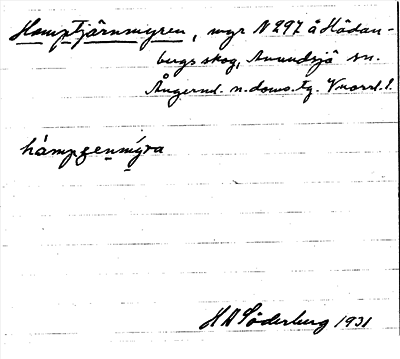 Hamptjärnmyren, myr N 297 å Hädan-
bergs skog, Anundsjö sn.
Ångerml. n. doms. tg. Vnorrl. l.
hámpɀenmýra
H A Söderberg 1931